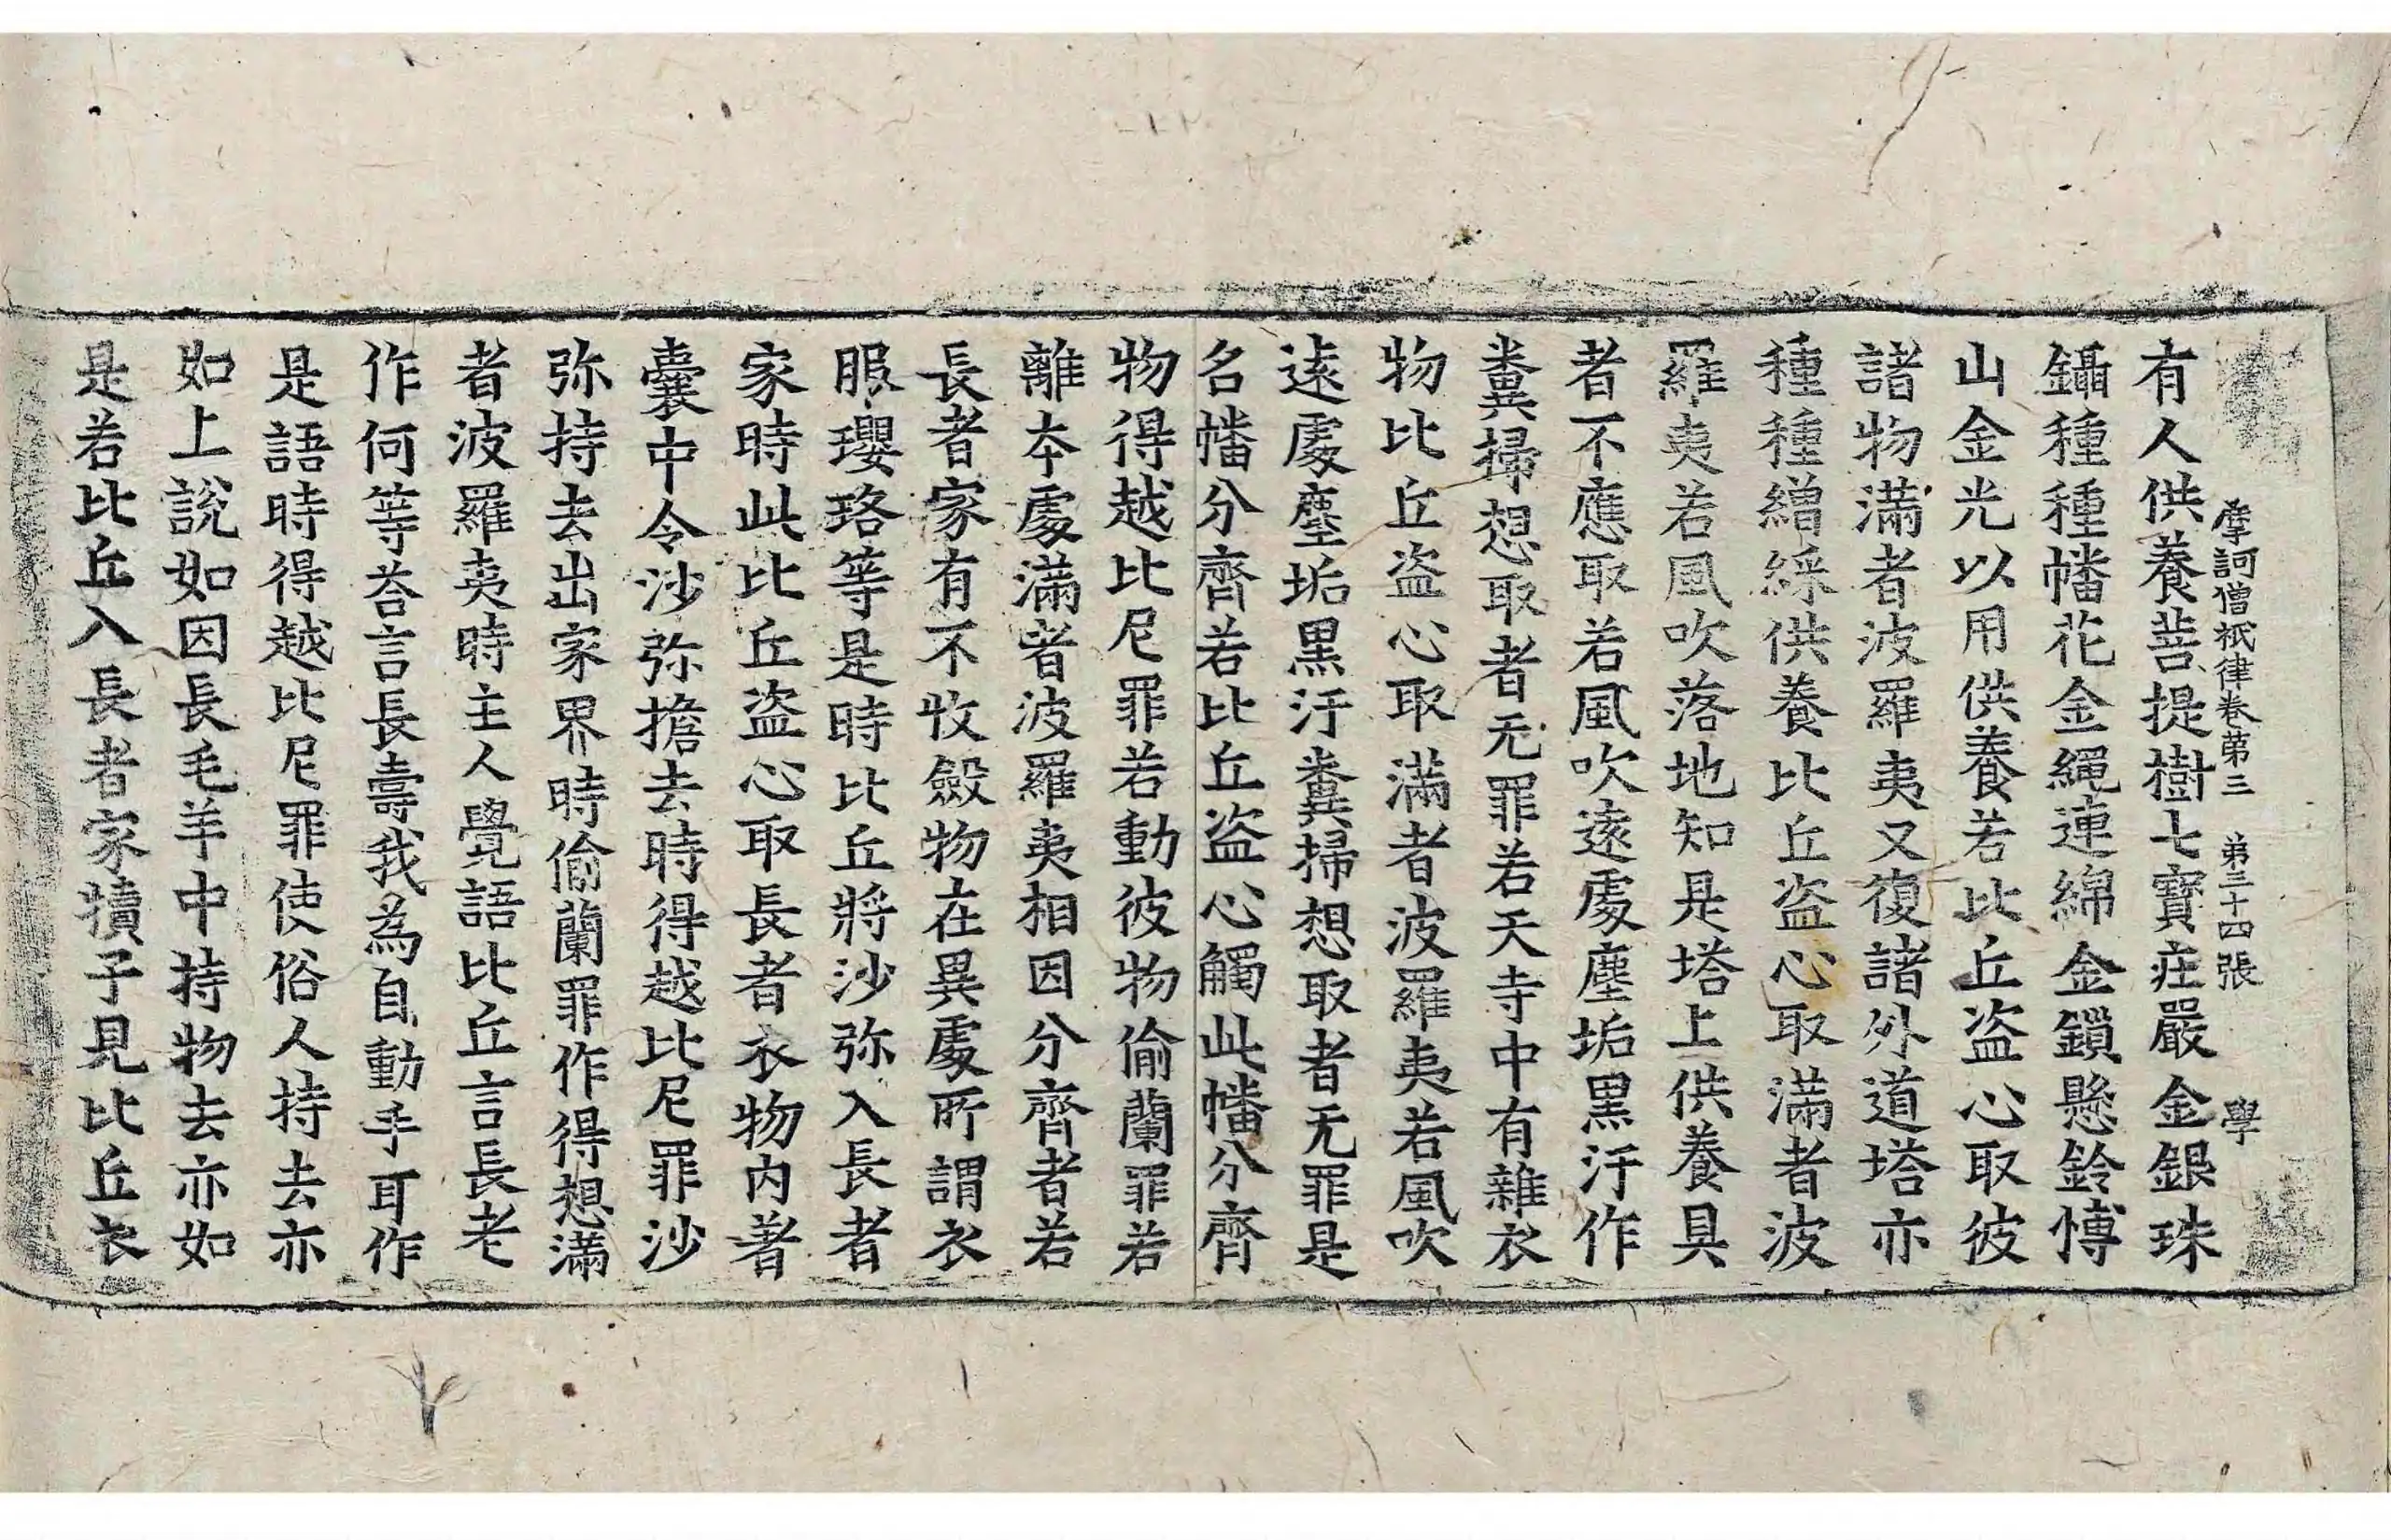 摩訶僧祇律卷第三　第三十四張　學
有人供養菩提樹七寶莊嚴金銀珠
鑷種種幡花金繩連綿金鎖懸鈴愽
山金光以用供養若比丘盜心取彼
諸物滿者波羅夷又復諸外道塔亦
種種繒綵供養比丘盜心取滿者波
羅夷若風吹落地知是塔上供養具
者不應取若風吹遠處塵垢黒汙作
糞掃想取者无罪若天寺中有雜衣
物比丘盜心取滿者波羅夷若風吹
遠處塵垢黒汙糞掃想取者无罪是
名幡分齊若比丘盜心觸此幡分齊
物得越比尼罪若動彼物偷蘭罪若
離本處滿者波羅夷相因分齊者若
長者家有不收斂物在異處所謂衣
服瓔珞等是時比丘將沙弥入長者
家時此比丘盜心取長者衣物内著
囊中令沙弥擔去時得越比尼罪沙
弥持去出家界時偷蘭罪作得想滿
者波羅夷時主人覺語比丘言長老
作何等荅言長壽我為自動手耳作
是語時得越比尼罪使俗人持去亦
如上說如因長毛羊中持物去亦如
是若比丘入長者家犢子見比丘衣